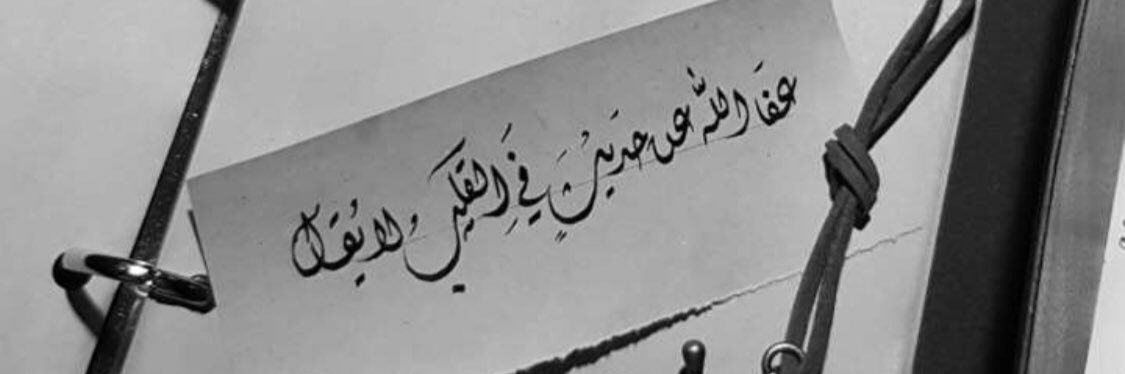 عفا الله عن حديثٍ في القلبِ لا يُقال